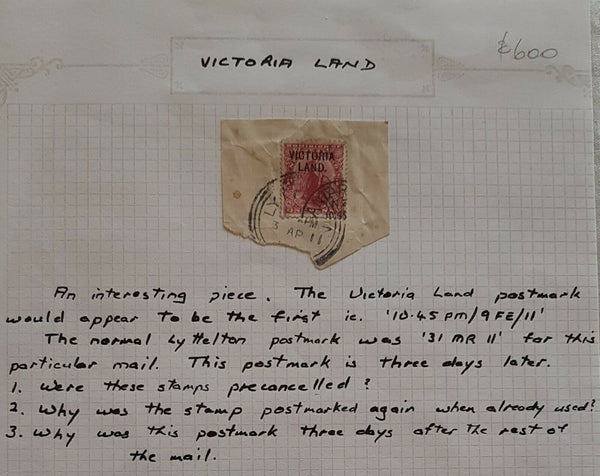 VICTORIA LAND
£600
VICTORIA
LAND.
LY
10.45
PM
3 AP 11
An interesting piece. The Victoria Land postmark
would appear to be the first ie. '10.45 pm/9 FE/11'
The normal Lyttelton postmark was '31 MR 11' for this
particular mail. This postmark is three days later.
1. Were these stamps precancelled?
2. Why was the stamp postmarked again when already used?
3. Why was this postmark three days after the rest of
the mail.